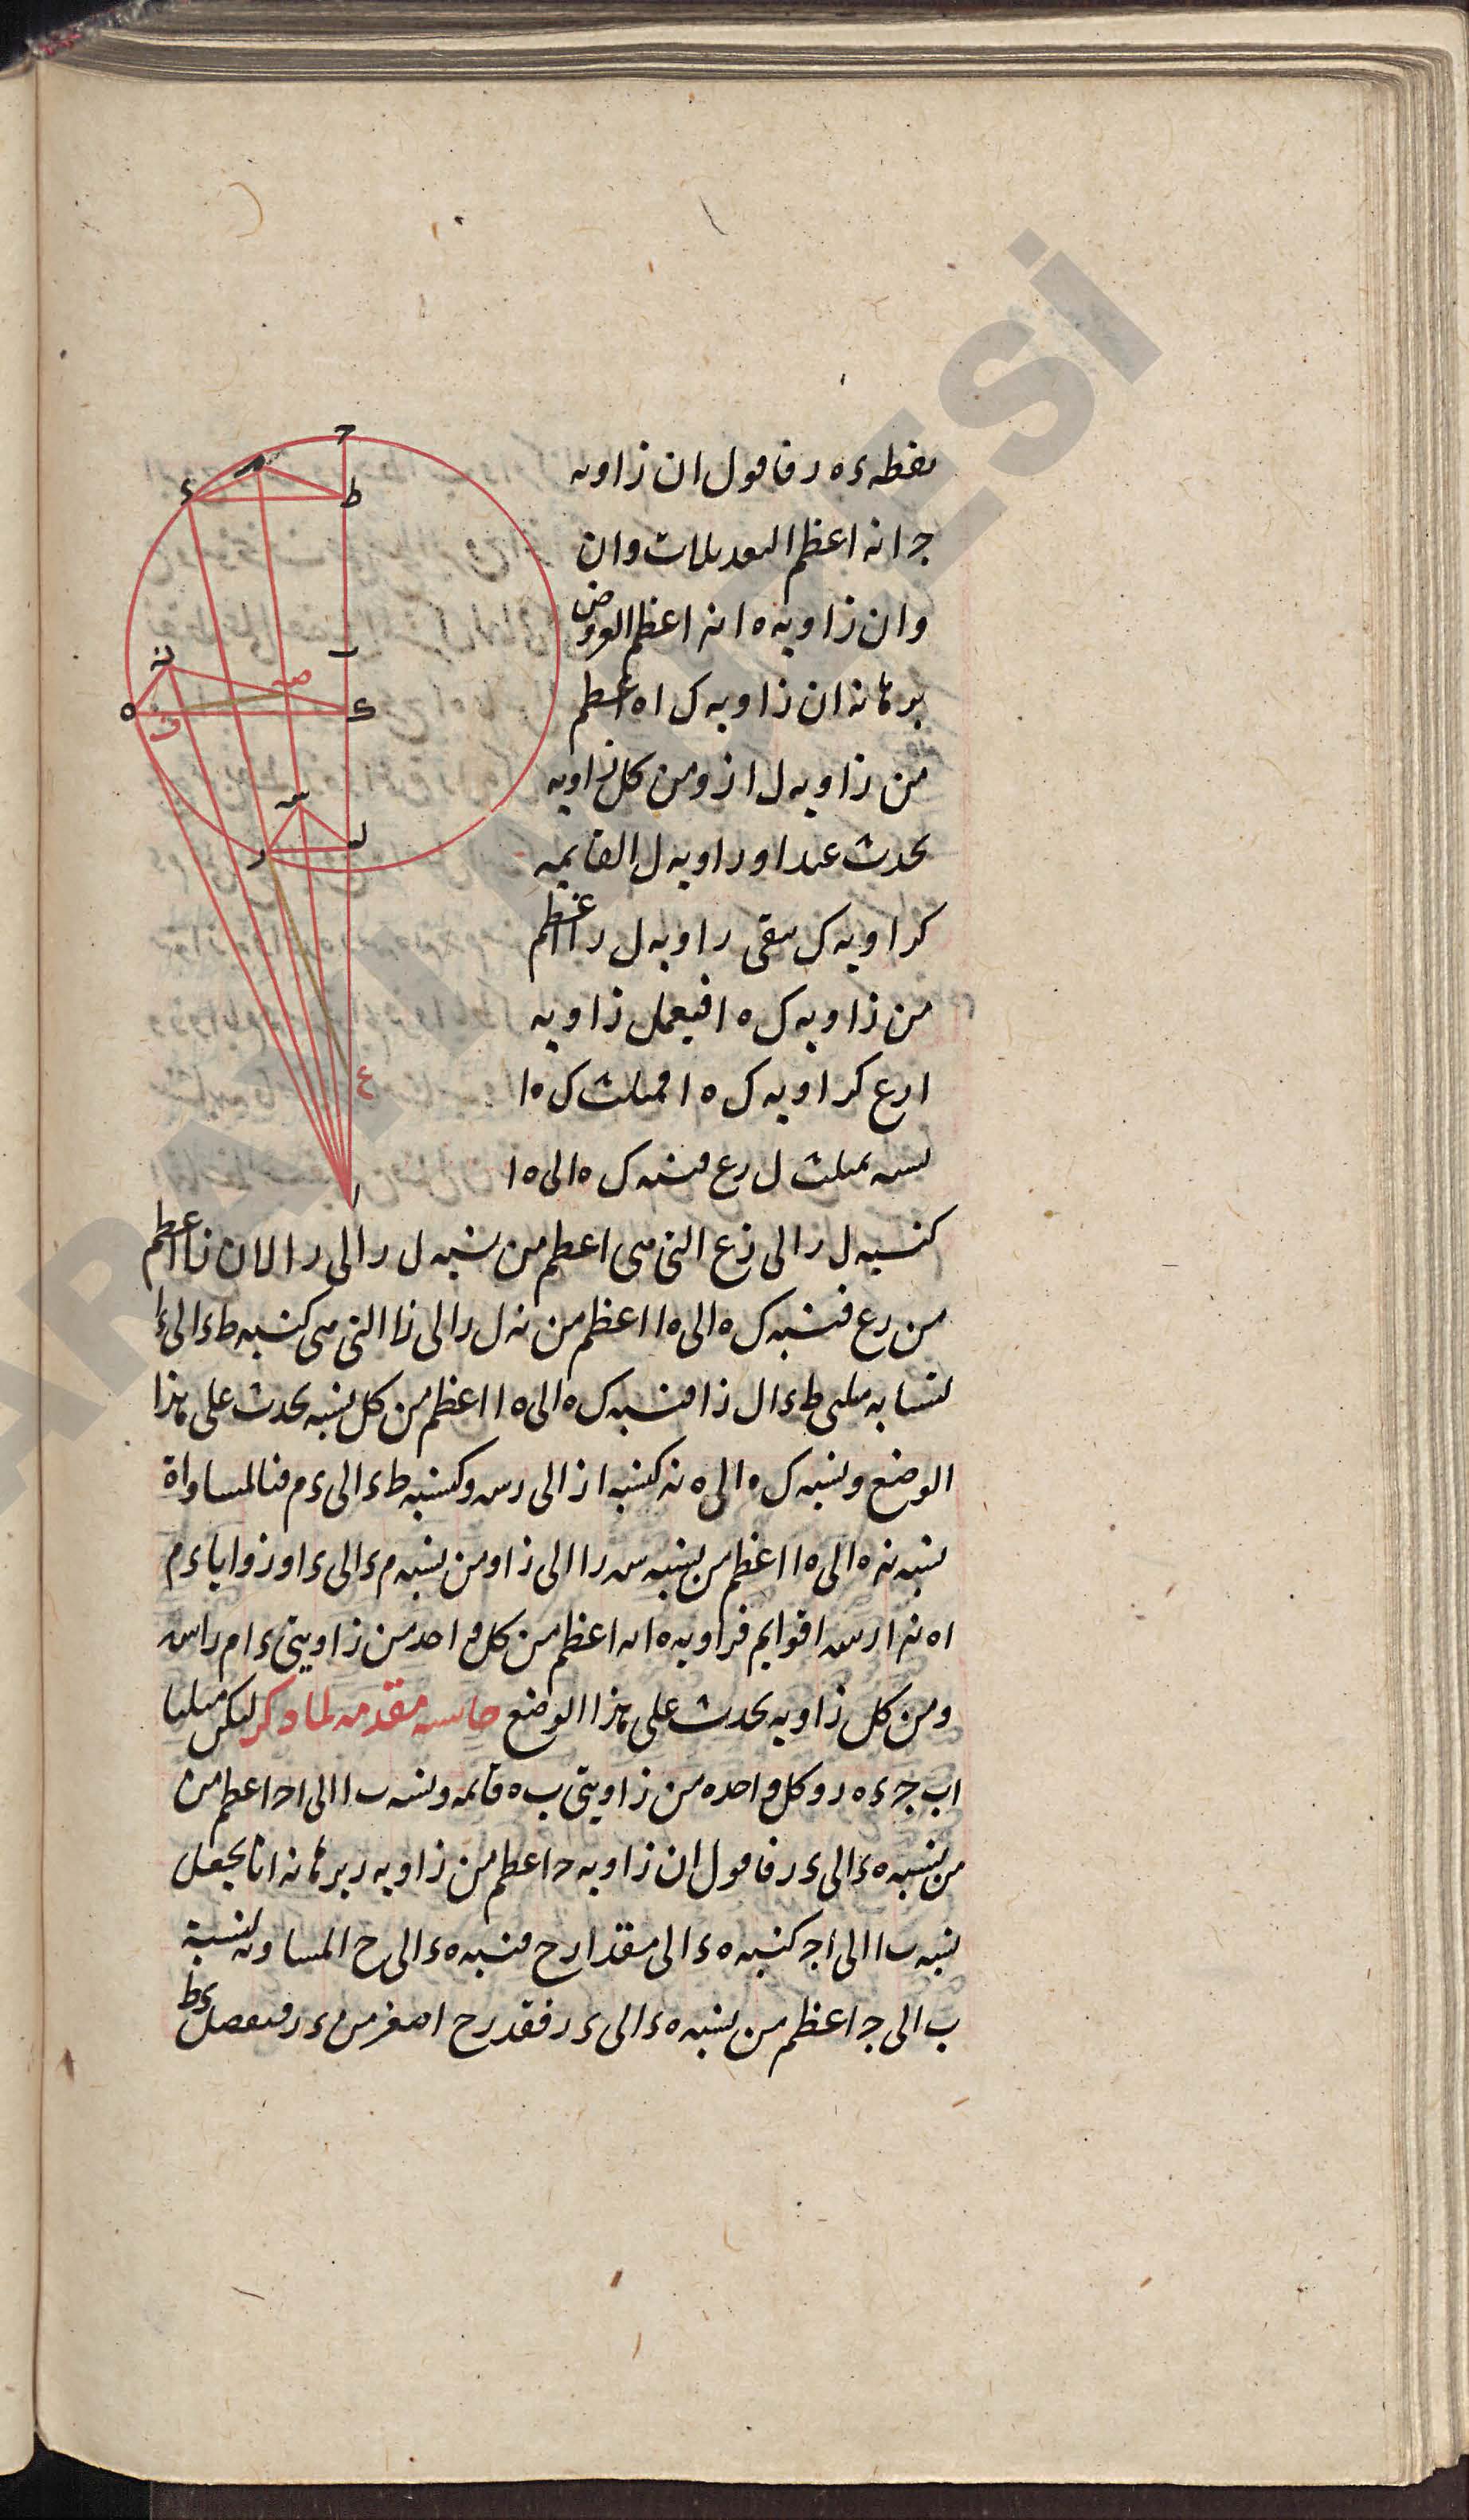 نقطه ء ه ر فاقول ان زاويه
ج ا نه اعظم التعديلات وان
وان زاويه ه ا نه اعظم العروض
برهانه ان زاويه ك ا ه اعظم
من زاويه ل ا ز ومن كل زاويه
تحدث عند ا وزاويه ل القايمه
كزاويه ك تبقى زاويه ل ر ا اعظم
من زاويه ك ه ا فيعمل زاويه
ا ر ع كزاويه ك ه ا فمثلث ك ه ا
يشبه مثلث ل ر ع فنسبه ك ه الى ه ا
كنسبه ل ز الى ز ع التى هى اعظم من نسبه ل ر الى ر ا لان ز ا اعظم
من ر ع فنسبه ك ه الى ه ا اعظم من نه ل ر الى ز ا التى هى كنسبه ط ء الى ء ا
لتشابه مثلثى ط ء ا ل ز ا فنسبه ك ه الى ه ا اعظم من كل نسبه تحدث على هذا
الوضع ونسبه ك ه الى ه نه كنسبه ا ز الى ر س وكنسبه ط ء الى ء م فبالمساواة
نسبه نه ه الى ه ا اعظم من نسبه س ر ا الى ز ا ومن نسبه م ء الى ء ا وزوايا ء م
ا ه نه ا ر س ا قوايم فزاويه ه ا نه اعظم من كل واحد من زاويتى ء ا م ر ا س
ومن كل زاويه تحدث على هذا الوضع حاشيه مقدمه لما ذكر ليكن مثلثا
اب ج ء ه ر وكل واحده من زاويتى ب ه قائمه ونسبه ب ا الى ا ج اعظم من
من نسبه ه ء الى ء ر فاقول ان زاويه ج اعظم من زاويه ر برهانه انا نجعل
نسبه ب ا الى ا ج كنسبه ه ء الى مقدار ح فنسبه ه ء الى ح المساويه لنسبة
ب الى ج اعظم من نسبه ه ء الى ء ر فقدر ح اصغر من ء ر فنفصل ء ط
ح
م
ء
ط
ب
نه
ص
ه
ف
ك
س
ل
ر
ع
ا